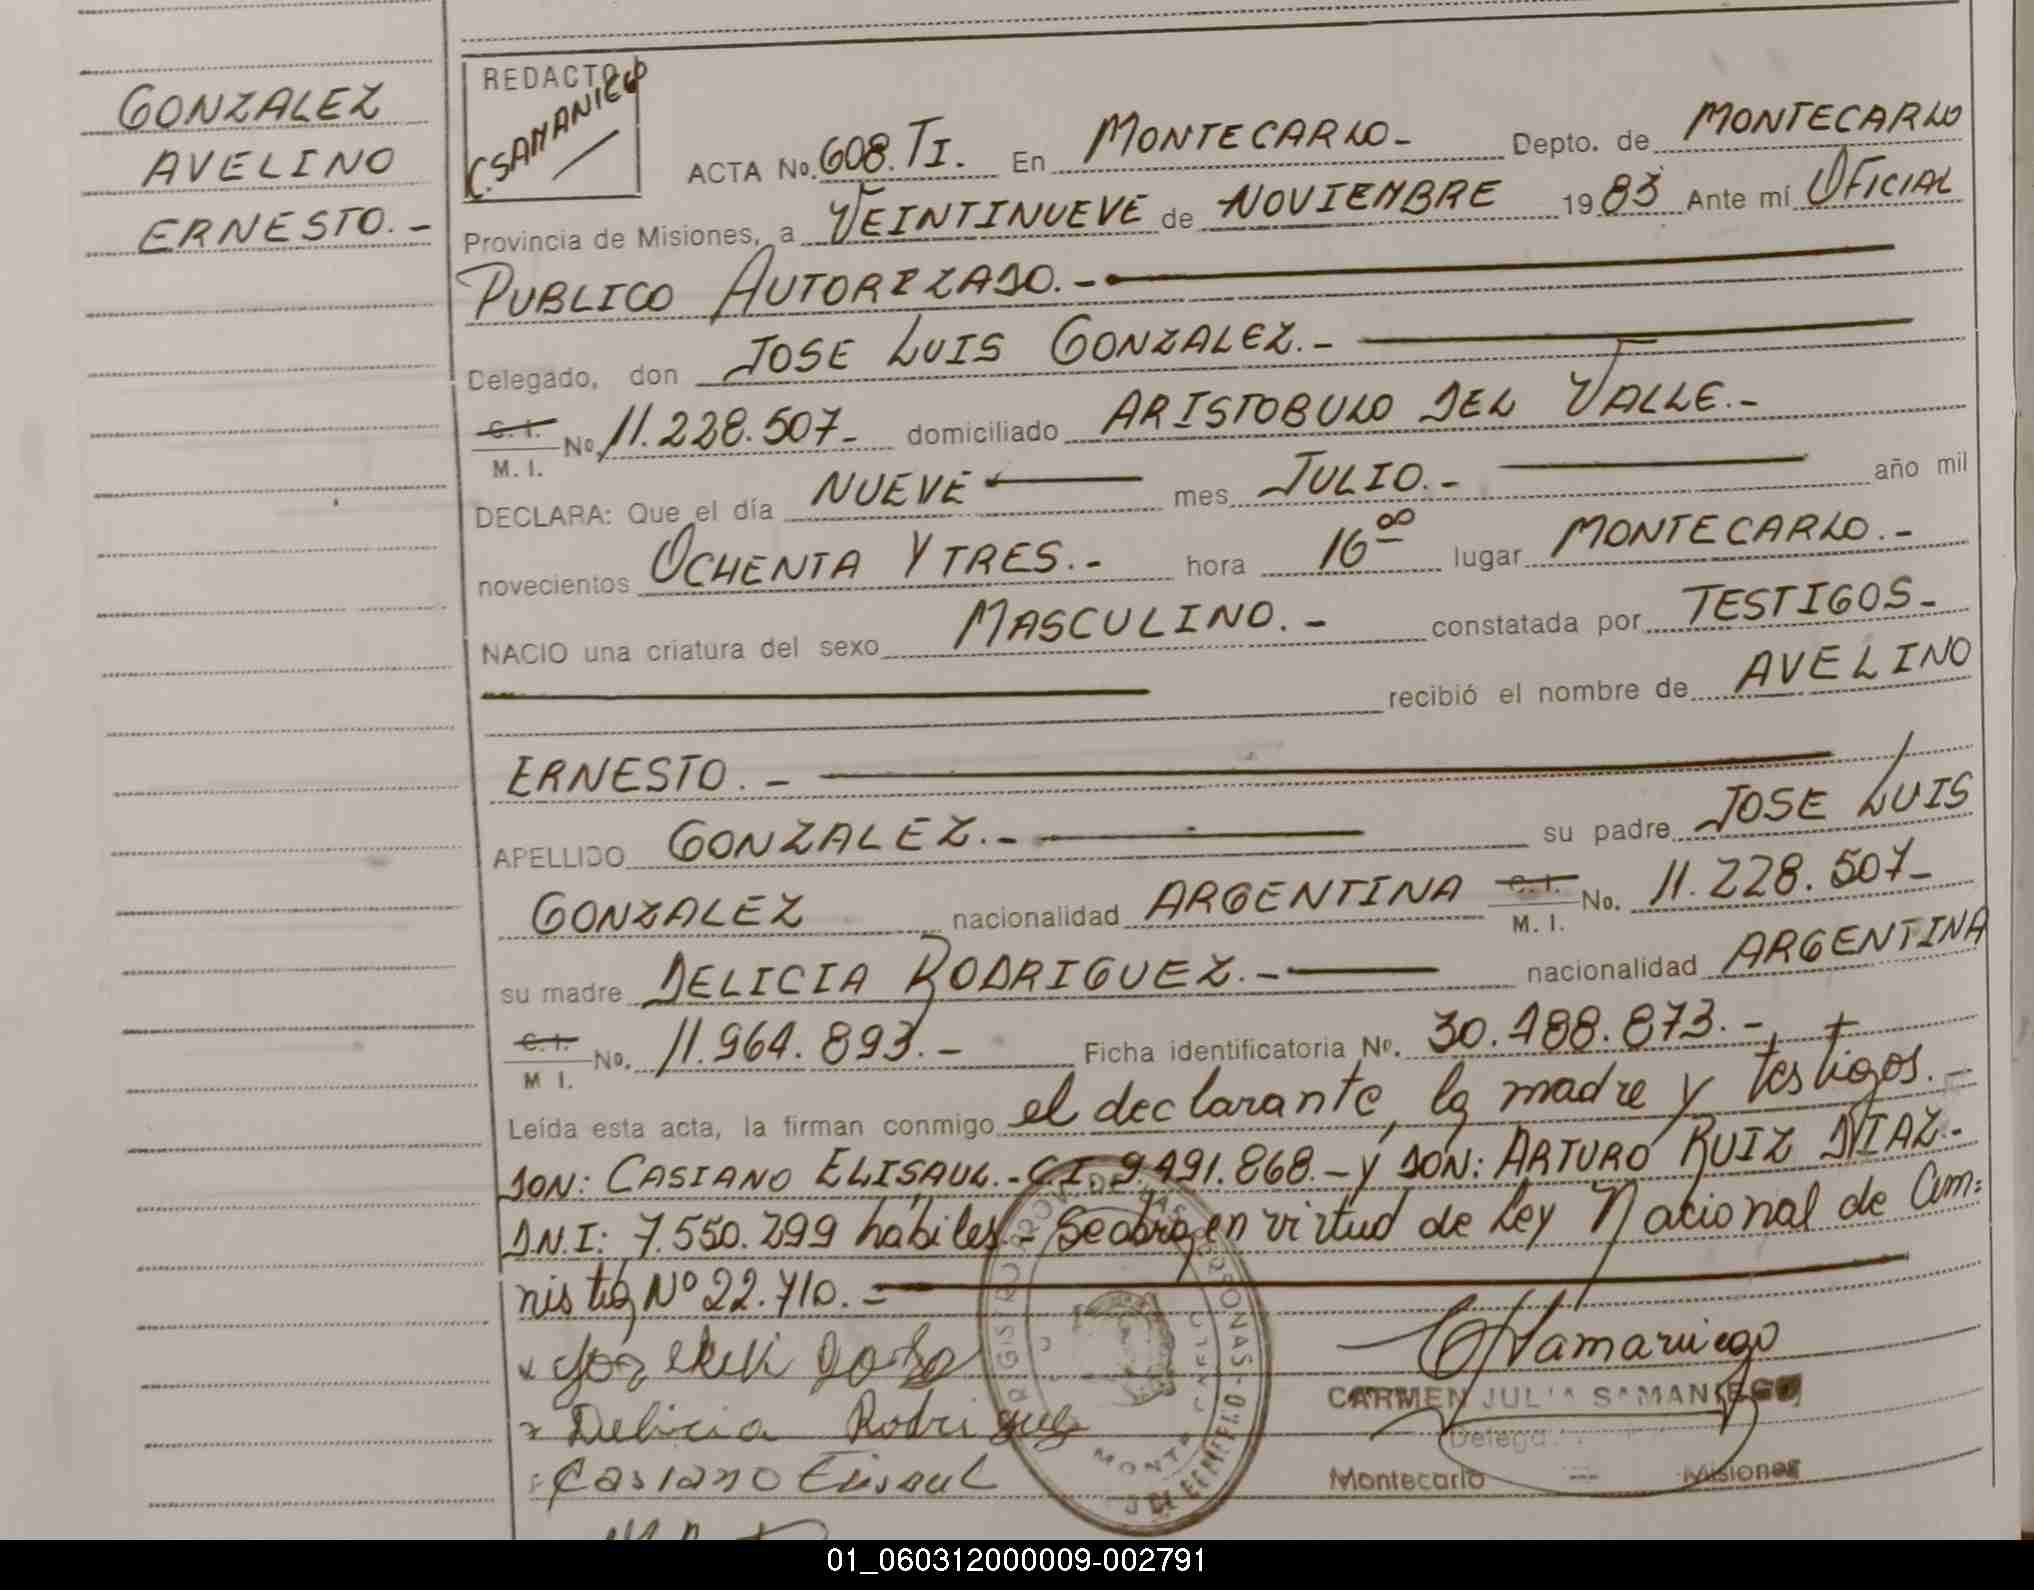 GONZALEZ
AVELINO
ERNESTO.-
REDACTO
C.SAMANIEGO
ACTA No. 608.TI. En MONTECARLO- Depto. de MONTECARLO
Provincia de Misiones, a VEINTINUEVE de NOVIEMBRE 1983 Ante mí OFICIAL
PUBLICO AUTORIZADO.-
Delegado, don JOSE LUIS GONZALEZ.-
C. I.
M. I. No. 11.228.507- domiciliado ARISTOBULO DEL VALLE.-
DECLARA: Que el día NUEVE mes JULIO.- año mil
novecientos OCHENTA Y TRES.- hora 16 00 lugar MONTECARLO.-
NACIO una criatura del sexo MASCULINO.- constatada por TESTIGOS-
recibió el nombre de AVELINO
ERNESTO.-
APELLIDO GONZALEZ.- su padre JOSE LUIS
GONZALEZ nacionalidad ARGENTINA C. I. M. I. No. 11.228.507-
su madre DELICIA RODRIGUEZ.- nacionalidad ARGENTINA
C. I. M I. No. 11.964.893.- Ficha identificatoria No. 30.188.873.-
Leída esta acta, la firman conmigo el declarante, la madre y testigos.-
DON: CASIANO ELISAUL.-C.I. 9.491.868.- y DON: ARTURO RUIZ DIAZ-
D.N.I: 7.550.299 hábiles.- Se obra en virtud de Ley Nacional de Am=
nistia Nº 22.710.=
Delicia Rodriguez
Casiano Elisaul
CSamaniego
CARMEN JULIA SAMANIEGO
Delega
Montecarlo — Misiones
01_060312000009-002791